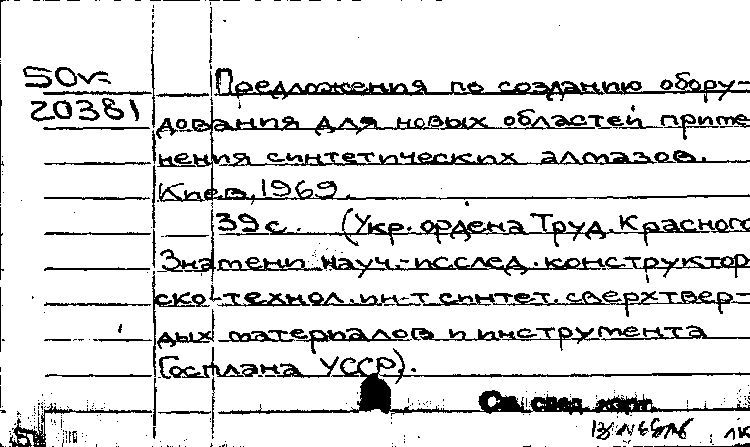 50v=
20381
Предложения по созданию обору-
дования для новых областей приме
нения синтетических алмазов.
Киев, 1969.
39 с. (Укр. ордена Труд. Красного
Знамени науч.-исслед. конструктор
ско-технол. ин-т синтет. сверхтвер-
дых материалов и инструмента
Госплана УССР).
См. след. карт.